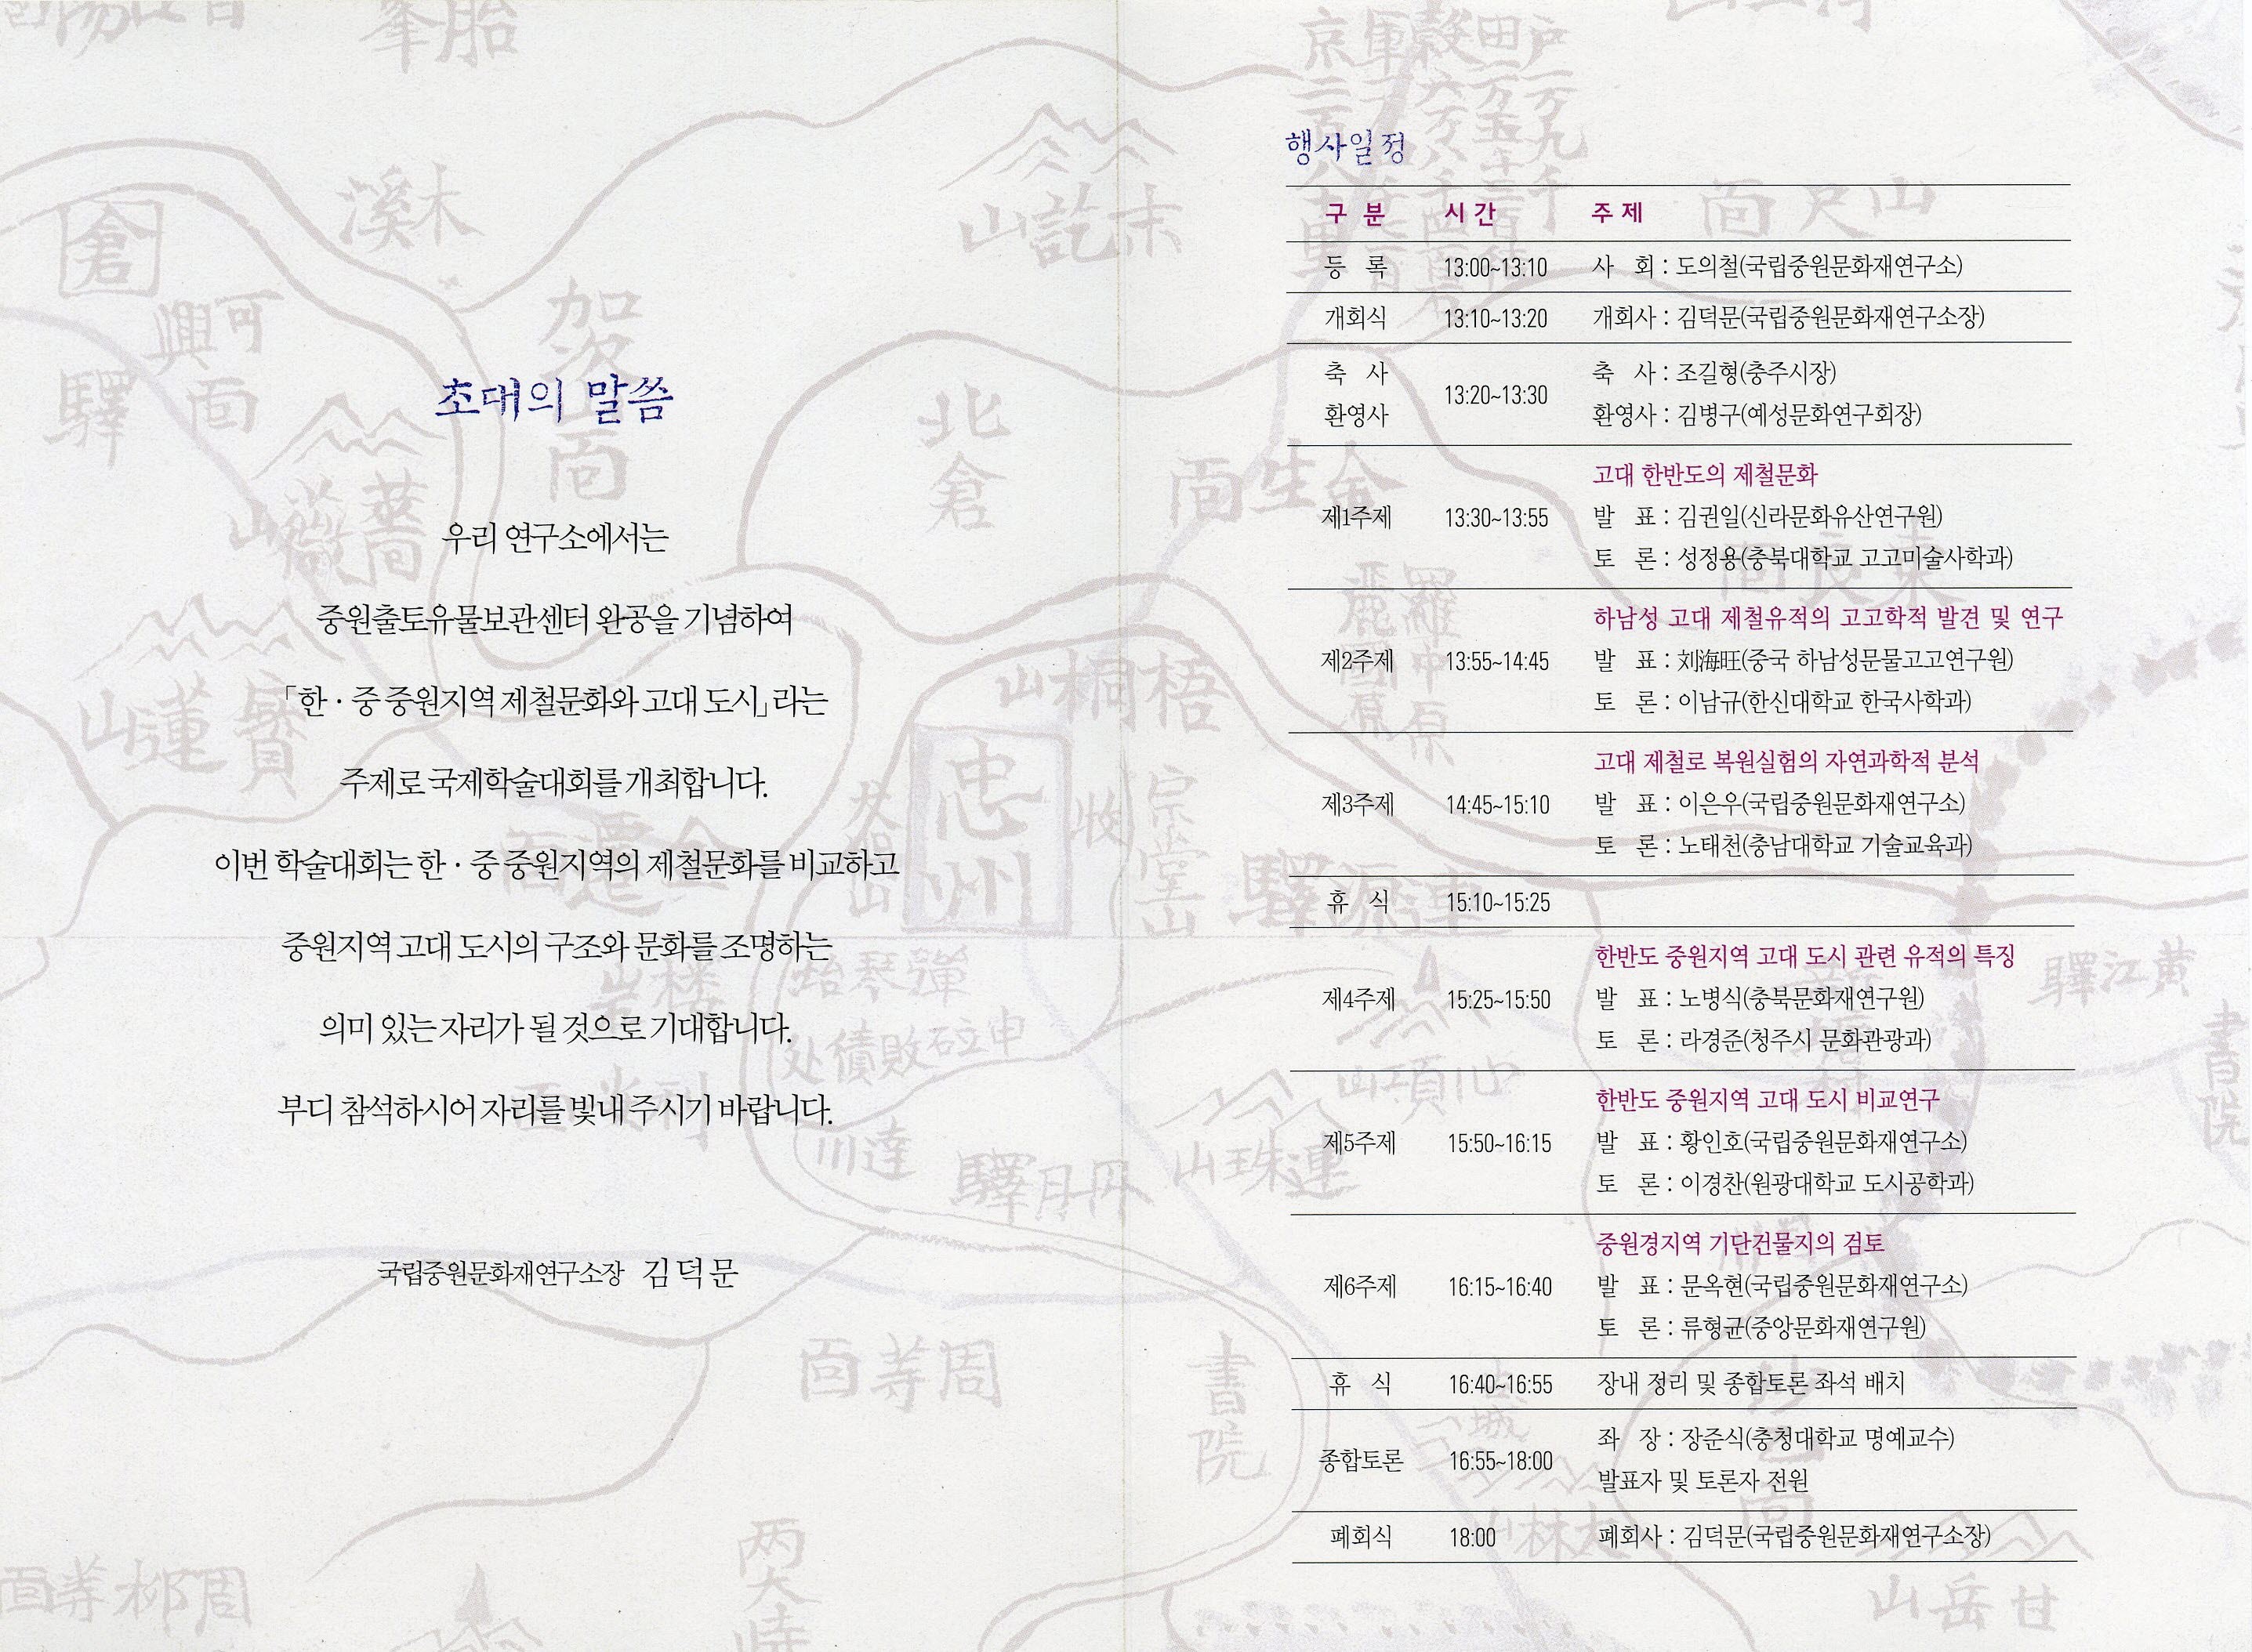 초대의 말씀
우리 연구소에서는
중원출토유물보관센터 완공을 기념하여
「한 · 중 중원지역 제철문화와 고대 도시」라는
주제로 국제학술대회를 개최합니다.
이번 학술대회는 한 · 중 중원지역의 제철문화를 비교하고
중원지역 고대 도시의 구조와 문화를 조명하는
의미 있는 자리가 될 것으로 기대합니다.
부디 참석하시어 자리를 빛내 주시기 바랍니다.
국립중원문화재연구소장 김덕문
행사일정
구 분 시 간 주 제
등 록 13:00~13:10 사 회 : 도의철(국립중원문화재연구소)
개회식 13:10~13:20 개회사 : 김덕문(국립중원문화재연구소장)
축 사 환영사 13:20~13:30
축 사 : 조길형(충주시장)
환영사 : 김병구(예성문화연구회장)
고대 한반도의 제철문화
제1주제 13:30~13:55 발 표 : 김권일(신라문화유산연구원)
토 론 : 성정용(충북대학교 고고미술사학과)
하남성 고대 제철유적의 고고학적 발견 및 연구
제2주제 13:55~14:45 발 표 : 刘海旺(중국 하남성문물고고연구원)
토 론 : 이남규(한신대학교 한국사학과)
고대 제철로 복원실험의 자연과학적 분석
제3주제 14:45~15:10 발 표 : 이은우(국립중원문화재연구소)
토 론 : 노태천(충남대학교 기술교육과)
휴 식 15:10~15:25
한반도 중원지역 고대 도시 관련 유적의 특징
제4주제 15:25~15:50 발 표 : 노병식(충북문화재연구원)
토 론 : 라경준(청주시 문화관광과)
한반도 중원지역 고대 도시 비교연구
제5주제 15:50~16:15 발 표 : 황인호(국립중원문화재연구소)
토 론 : 이경찬(원광대학교 도시공학과)
중원경지역 기단건물지의 검토
제6주제 16:15~16:40 발 표 : 문옥현(국립중원문화재연구소)
토 론 : 류형균(중앙문화재연구원)
휴 식 16:40~16:55 장내 정리 및 종합토론 좌석 배치
종합토론 16:55~18:00 좌 장 : 장준식(충청대학교 명예교수)
발표자 및 토론자 전원
폐회식 18:00 폐회사 : 김덕문(국립중원문화재연구소장)
倉
木溪
北倉
忠州
書院